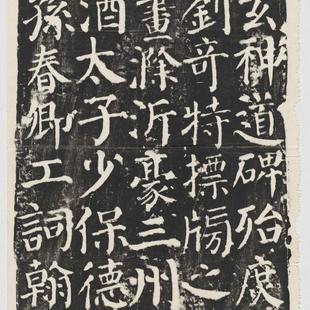 玄神道碑殆度
劉奇特標牓之
畫滁沂豪三州
酒太子少保德
孫春卿工詞翰